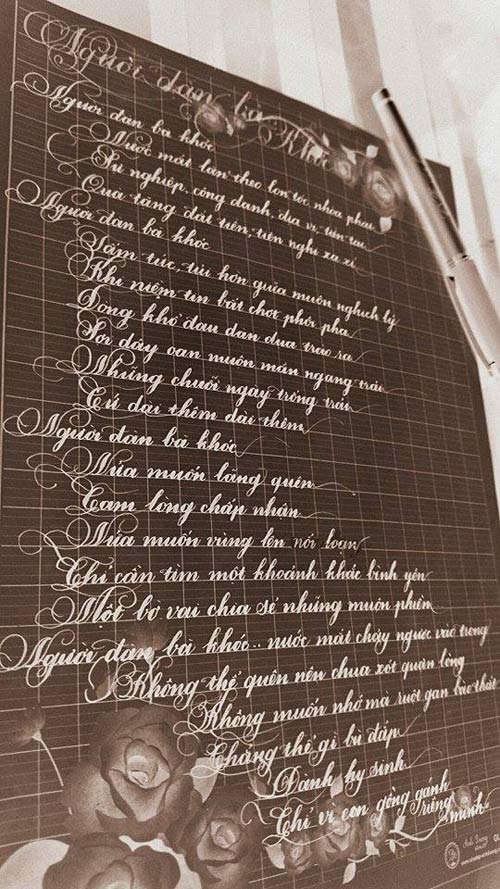 Người đàn bà Khóc
Người đàn bà khóc
Nước mắt lăn theo lọn tóc nhựa phai
Sự nghiệp, công danh, địa vị, tiền tài
Quà tặng đắt tiền, tiện nghi xa xỉ
Người đàn bà khóc
Sầm tức, tủi hờn giữa muôn nghịch lý
Khi niệm tin bất chợt phôi pha
Sóng khổ đau đan đưa trao ra
Sợi dây oan muôn màn ngang trái
Những chuỗi ngày trống trải
Cứ dài thêm dài thêm
Người đàn bà khóc
Nửa muốn lãng quên
Cam lòng chấp nhận
Nửa muốn vùng lên nổi loạn
Chỉ cần tìm một khoảnh khắc bình yên
Một bờ vai chia sẻ những muộn phiền
Người đàn bà khóc.. nước mắt chảy ngược vào trong
Không thể quên nên chua xót quặn lòng
Không muốn nhớ mà ruột gan thắt
Chẳng thể gì bù đắp
Đành hy sinh
Chỉ vì con gồng gánh
riêng mình